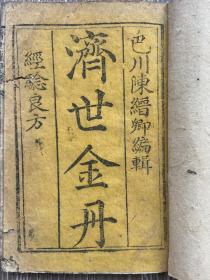 巴川陳縉卿編輯
濟世金丹
經驗良方